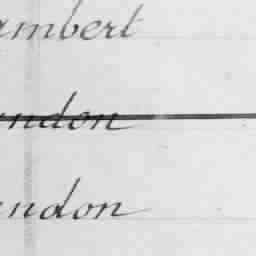 ambert
ndon
ndon